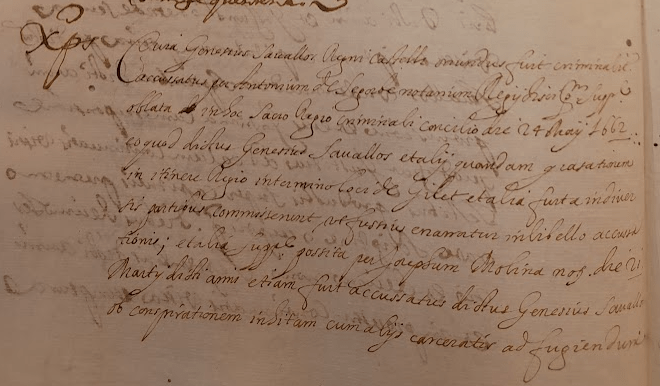 Xps
Quia Genesius Savallos Regni Castelle oriundus fuit criminalit
accussatus per Antonium notarium Regij fisci supp.e
oblata in hoc Sacro Regio Criminali Concilio die 24 May 1662
eo quod dictus Genesius Savallos et alij quandam grasationem
in itinere Regio in termino loci de Gilet et alia furta in diver
sis partibus commisserunt ut fustius enarratur in libello accussa
tionis; et alia supp.e possita per Josephum Molina not. die 21
Martij dicti anni etiam fuit accussatus dictus Genesius Savallos
ob conspirationem inhitam cum alijs carceratis ad fugiendum